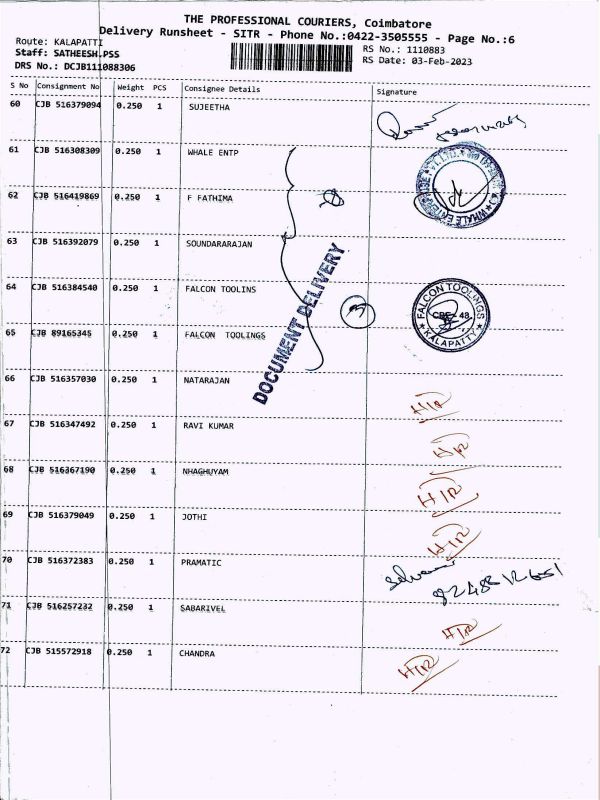 THE PROFESSIONAL COURIERS, Coimbatore
Delivery Runsheet - SITR - Phone No.:0422-3505555 - Page No.:6
Route: KALAPATTI
Staff: SATHEESH.PSS
DRS No.: DCJB111088306
RS No.: 1110883
RS Date: 03-Feb-2023
S No Consignment No Weight PCS Consignee Details Signature
60 CJB 516379094 0.250 1 SUJEETHA
61 CJB 516308309 0.250 1 WHALE ENTP
62 CJB 516419869 0.250 1 F FATHIMA
63 CJB 516392079 0.250 1 SOUNDARARAJAN
64 CJB 516384540 0.250 1 FALCON TOOLINS
FALCON TOOLINGS
CBE - 48.
KALAPATTI
65 CJB 89165345 0.250 1 FALCON TOOLINGS
DOCUMENT DELIVERY
66 CJB 516357030 0.250 1 NATARAJAN
HTR
67 CJB 516347492 0.250 1 RAVI KUMAR
HTR
68 CJB 516367190 0.250 1 NHAGHUYAM
HTR
69 CJB 516379049 0.250 1 JOTHI
HTR
70 CJB 516372383 0.250 1 PRAMATIC
71 CJB 516257232 0.250 1 SABARIVEL
HTR
72 CJB 515572918 0.250 1 CHANDRA
HTR